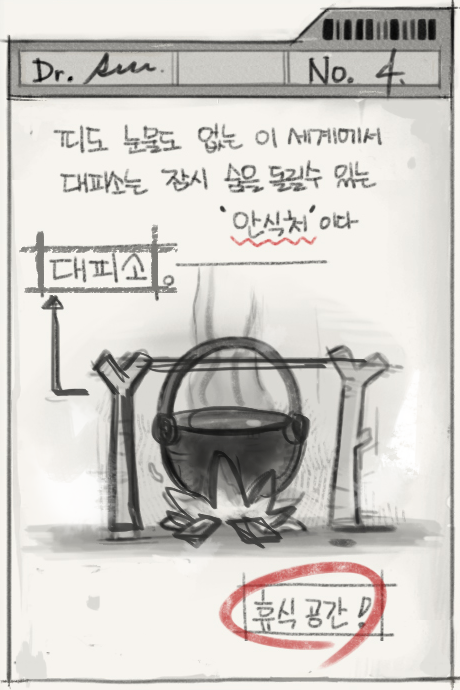 Dr.
No. 4.
피도 눈물도 없는 이 세계에서
대피소는 잠시 숨을 돌릴수 있는
'안식처' 이다
대피소.
휴식 공간!